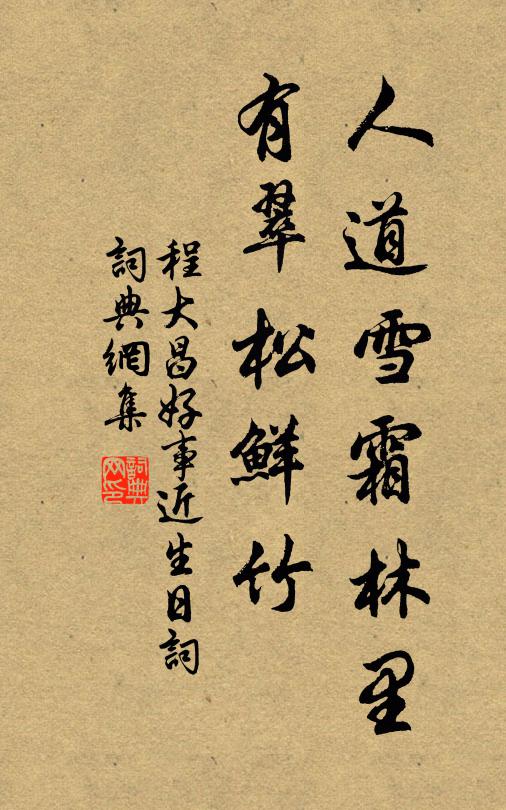 人道雪霜林里
有翠松鲜竹
程大昌好事近生日詞
詞典網集
詞典
网印